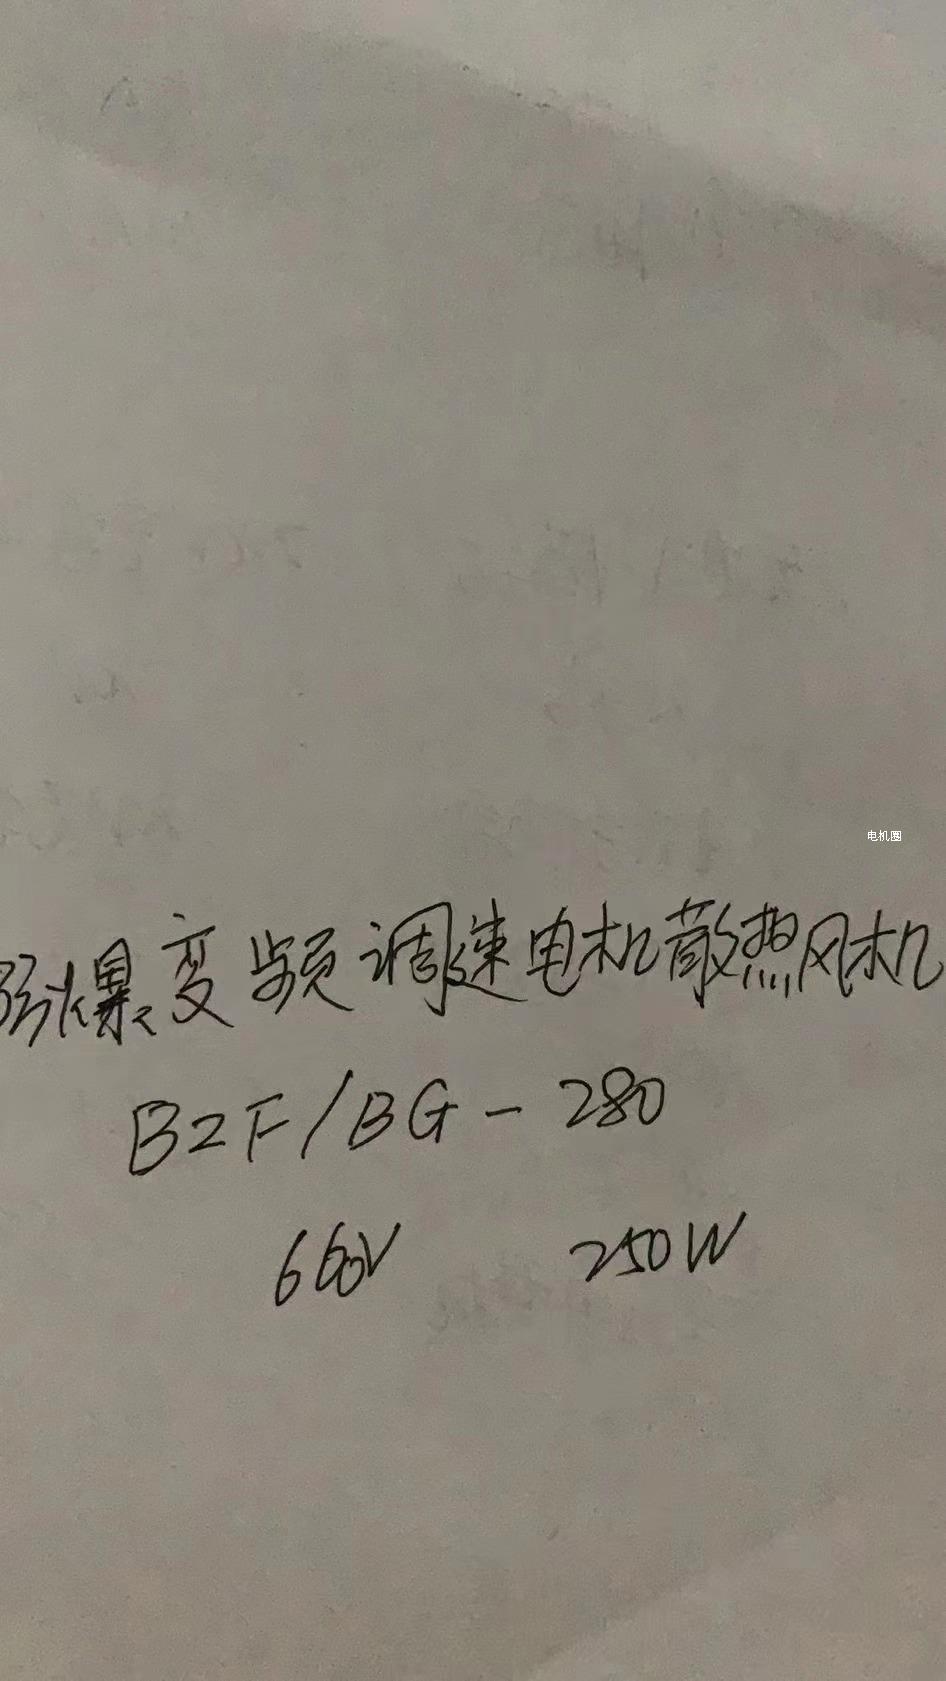 电机圈
防爆变频调速电机散热风机
B2F/BG-280
660V 250W